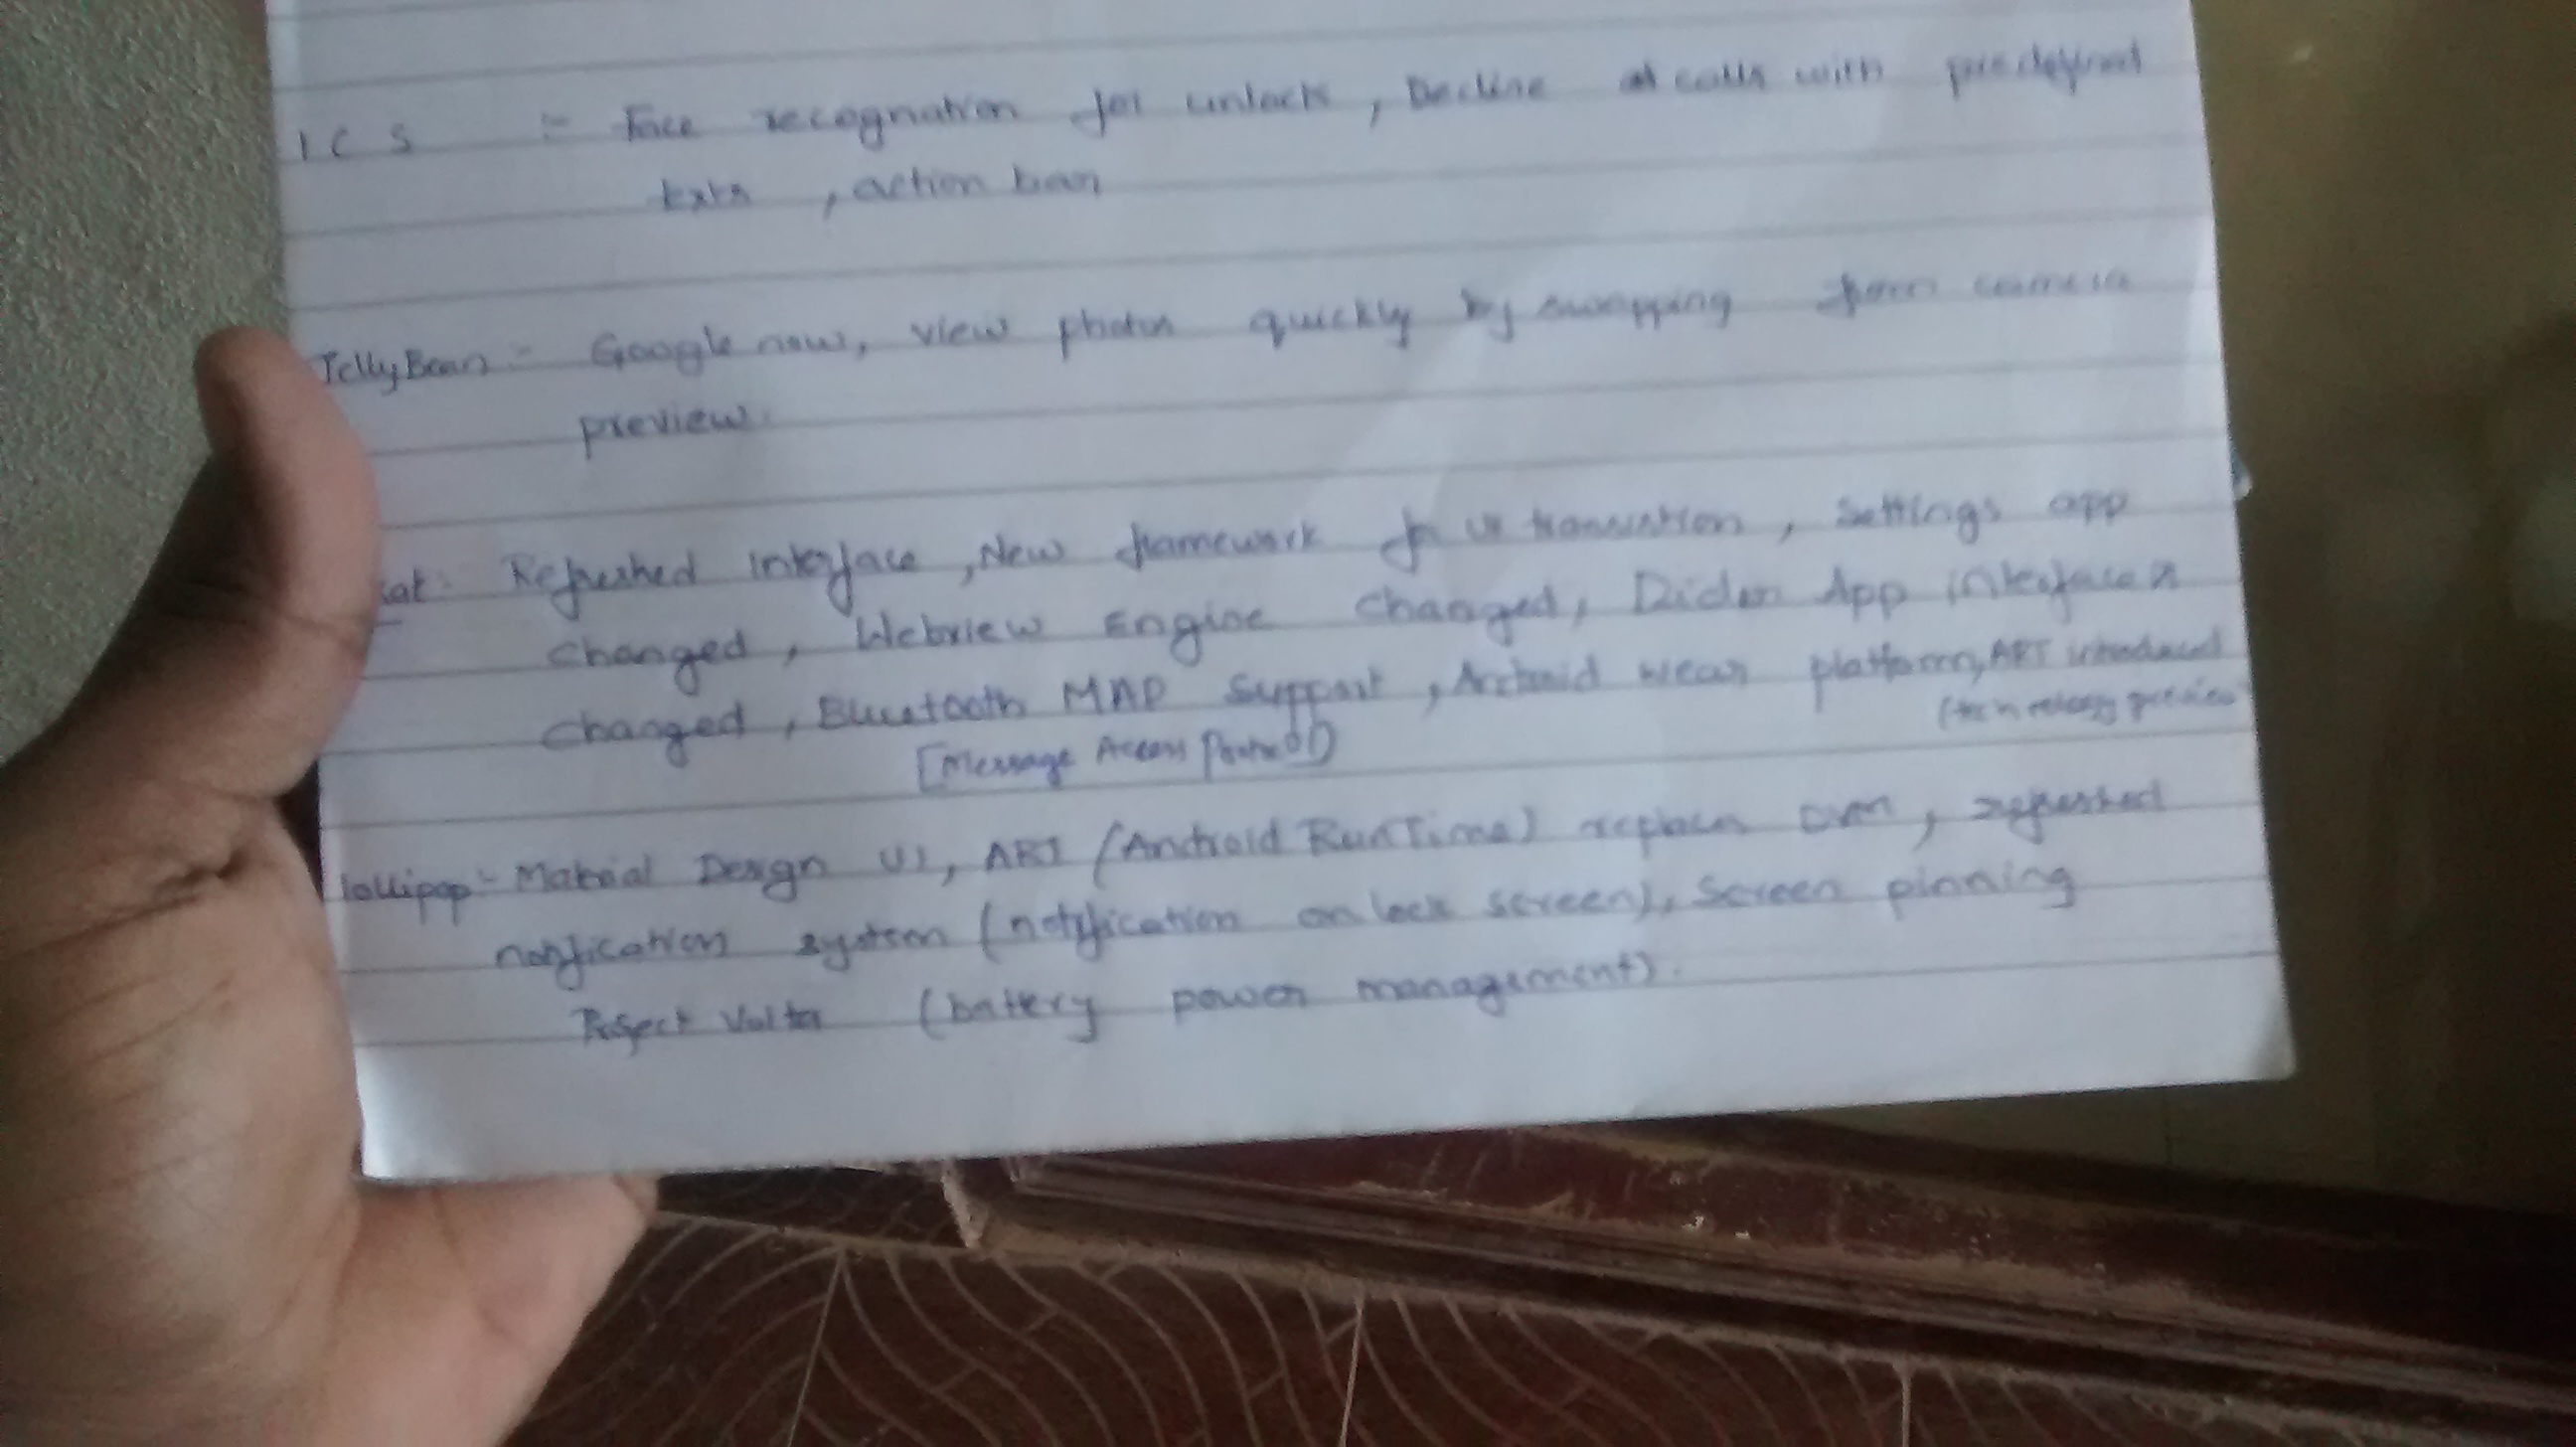 I C S :- Face recognation for unlock, Decline calls with predefined
texts, action bar,
JellyBean :- Google now, view photos quickly by swapping from camera
preview.
kat: Refreshed interface, New framework for UI transistion, Settings app
changed, Webview Engine changed, App interface
changed, Bluetooth MAP Support, Android wear platform, ART introduced
(technology preview
[Message Access Protocol)
lollipop :- Material Design UI, ART (Android RunTime) replaces refreshed
notification system (notification on lock screen), Screen pinning
Project Volta (battery power management).